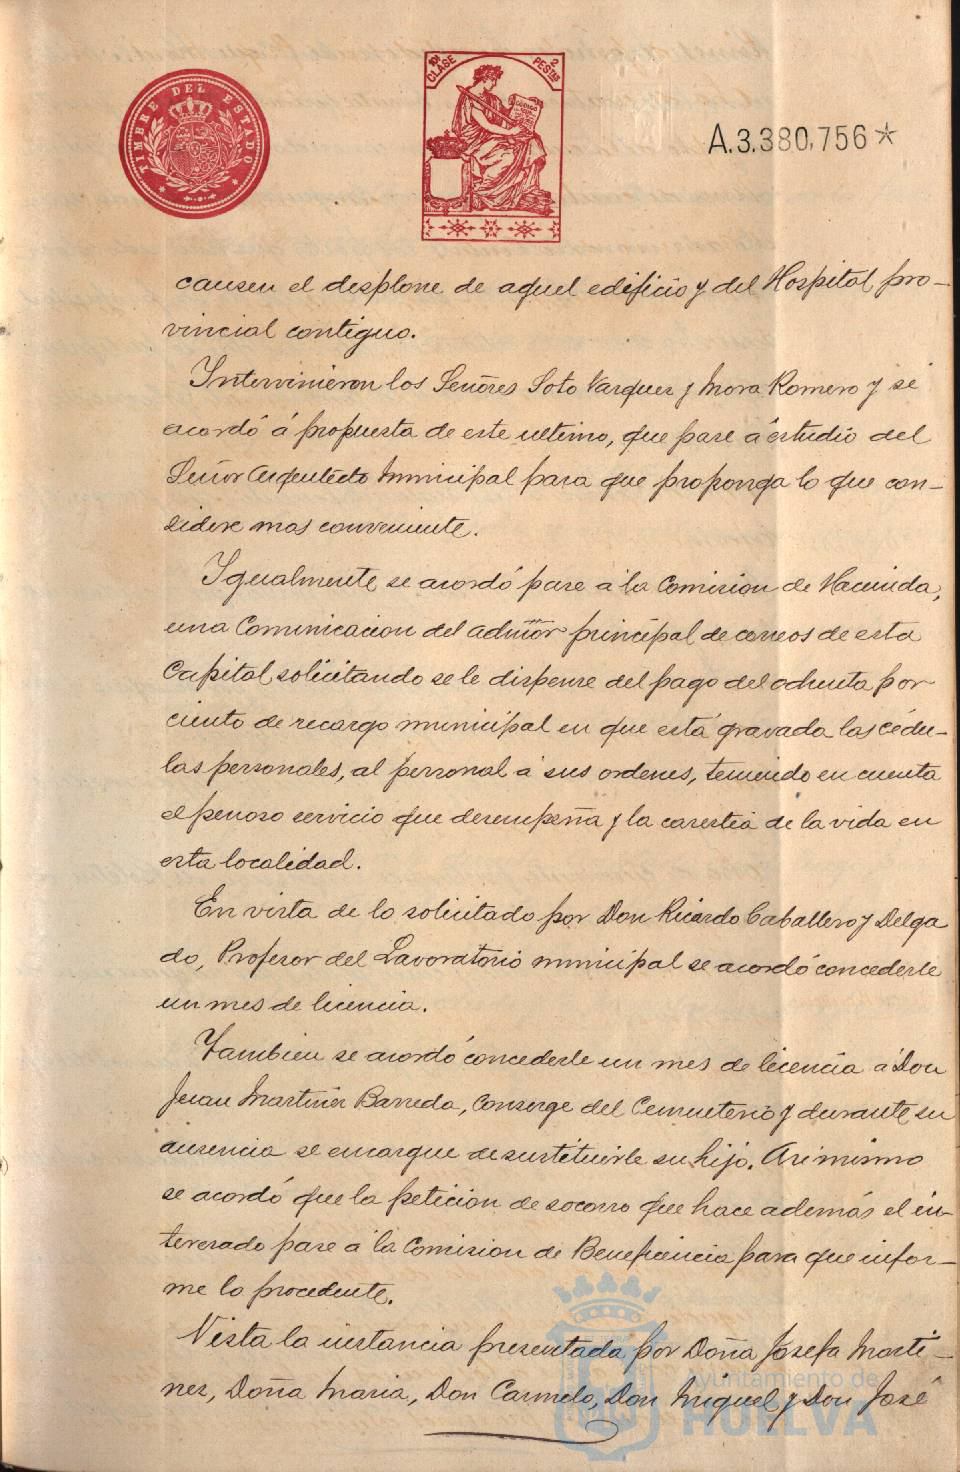 TIMBRE DEL ESTADO
10ª CLASE
2 PESTAS
CÓDIGO
A.3.380,756*
causen el desplone de aquel edificio y del Hospital pro-
vincial contiguo.
Intervinieron los Señores Soto Vazquez y Mora Romero y se
acordó á propuesta de este ultimo, que pase á estudio del
Señor Arquitecto Municipal para que proponga lo que con-
sidere mas conveniente.
Igualmente se acordó pase á la Comision de Hacienda,
una Comunicacion del Admor principal de correos de esta
Capital solicitando se le dispense del pago del ochenta por
ciento de recargo municipal en que está gravada las cédu-
las personales, al personal á sus ordenes, teniendo en cuenta
el penoso servicio que desempeña y la carestia de la vida en
esta localidad.
En vista de lo solicitado por Don Ricardo Caballero y Delga
do, Profesor del Lavoratorio municipal se acordó concederle
un mes de licencia.
Tambien se acordó concederle un mes de licencia á Don
Juan Martinez Barreda, Conserge del Cementerio y durante su
ausencia se encargue de sustituirle su hijo. Asi mismo
se acordó que la peticion de socorro que hace además el in-
teresado pase á la Comision de Beneficencia para que infor-
me lo procedente.
Vista la instancia presentada por Doña Josefa Marti-
nez, Doña Maria, Don Carmelo, Don Miguel y Don José
Ayuntamiento de
HUELVA